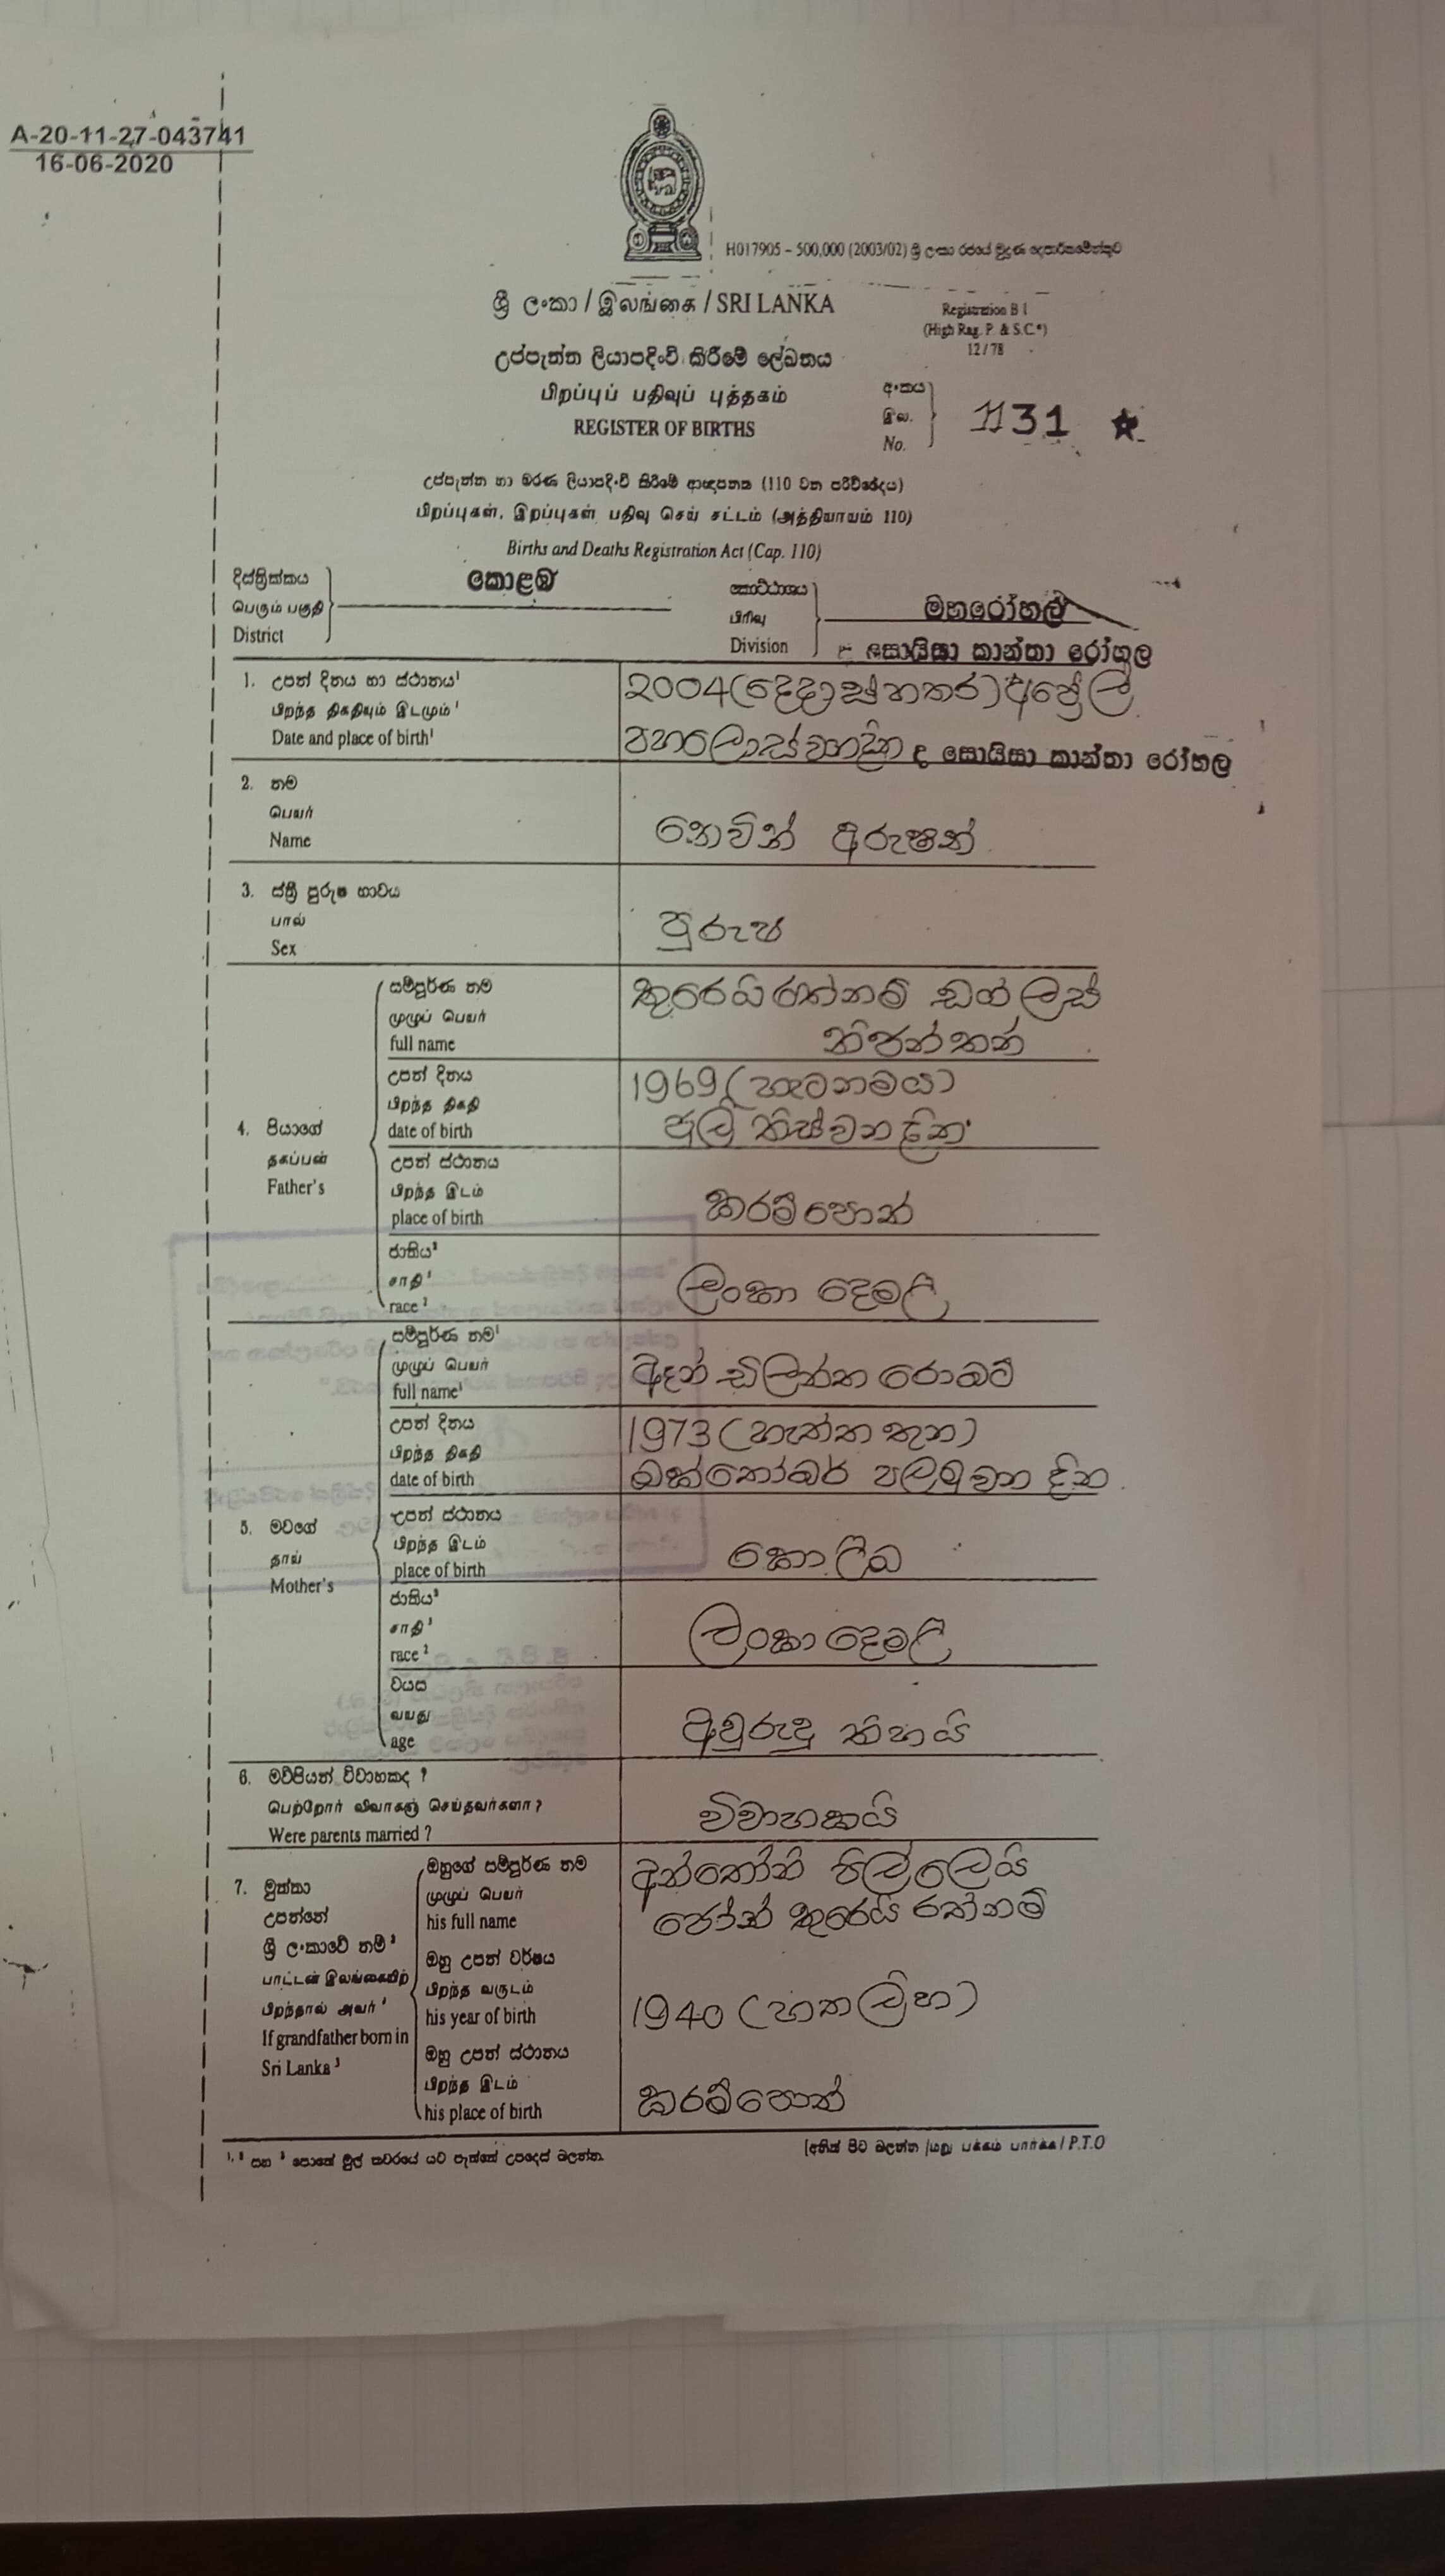 A-20-11-27-043741
16-06-2020
H017905 – 500,000 (2003/02) ශ්‍රී ලංකා රජයේ මුද්‍රණ දෙපාර්තමේන්තුව
ශ්‍රී ලංකා / இலங்கை / SRI LANKA
Registration B 1
(High Rag. P. & S.C.*)
12/78
උප්පැන්න ලියාපදිංචි කිරීමේ ලේඛනය
பிறப்புப் பதிவுப் புத்தகம்
REGISTER OF BIRTHS
අංකය
இல.
No.
1131 ★
උප්පැන්න හා මරණ ලියාපදිංචි කිරීමේ ආඥාපනත (110 වන පරිච්ඡේදය)
பிறப்புகள், இறப்புகள் பதிவு செய் சட்டம் (அத்தியாயம் 110)
Births and Deaths Registration Act (Cap. 110)
දිස්ත්‍රික්කය
பெரும் பகுதி
District
කොළඹ
කොට්ඨාශය
பிரிவு
Division
මහරෝහල
ද සොයිසා කාන්තා රෝහල
1. උපන් දිනය හා ස්ථානය¹
பிறந்த திகதியும் இடமும்¹
Date and place of birth¹
2004(දෙදාස් හතර) අප්‍රේල්
පහලොස්වනදින ද සොයිසා කාන්තා රෝහල
2. නම
பெயர்
Name
නෙවින් අරුෂන්
3. ස්ත්‍රී පුරුෂ භාවය
பால்
Sex
පුරුෂ
4. පියාගේ
தகப்பன்
Father's
සම්පූර්ණ නම
முழுப் பெயர்
full name
තුරෙයිරත්නම් ඩග්ලස්
නිජන්තන්
උපන් දිනය
பிறந்த திகதி
date of birth
1969 (හැටනමය)
ජූලි තිස්වන දින
උපන් ස්ථානය
பிறந்த இடம்
place of birth
කරම්පොන්
ජාතිය²
சாதி²
race ²
ලංකා දෙමළ
5. මවගේ
தாய்
Mother's
සම්පූර්ණ නම¹
முழுப் பெயர்
full name¹
ඈන් ඩිලන්ත රොබට්
උපන් දිනය
பிறந்த திகதி
date of birth
1973 (හැත්තතුන)
ඔක්තෝබර් පලමුවන දින
උපන් ස්ථානය
பிறந்த இடம்
place of birth
කොළඹ
ජාතිය²
சாதி²
race ²
ලංකා දෙමළ
වයස
வயது
age
අවුරුදු තිහයි
6. මව්පියන් විවාහකද ?
பெற்றோர் விவாகஞ் செய்தவர்களா?
Were parents married ?
විවාහකයි
7. මුත්තා
උපන්නේ
ශ්‍රී ලංකාවේ නම් ³
பாட்டன் இலங்கையிற்
பிறந்தால் அவர் ³
If grandfather born in
Sri Lanka ³
ඔහුගේ සම්පූර්ණ නම
முழுப் பெயர்
his full name
අන්තෝනි පිල්ලෙයි
ජෝන් තුරෙයි රත්නම්
ඔහු උපන් වර්ෂය
பிறந்த வருடம்
his year of birth
1940 (හතලිහ)
ඔහු උපන් ස්ථානය
பிறந்த இடம்
his place of birth
කරම්පොන්
¹, ² සහ ³ පොතේ මුල් කවරයේ යට පැත්තේ උපදෙස් බලන්න.
(අනිත් පිට බලන්න /மறு பக்கம் பார்க்க / P.T.O